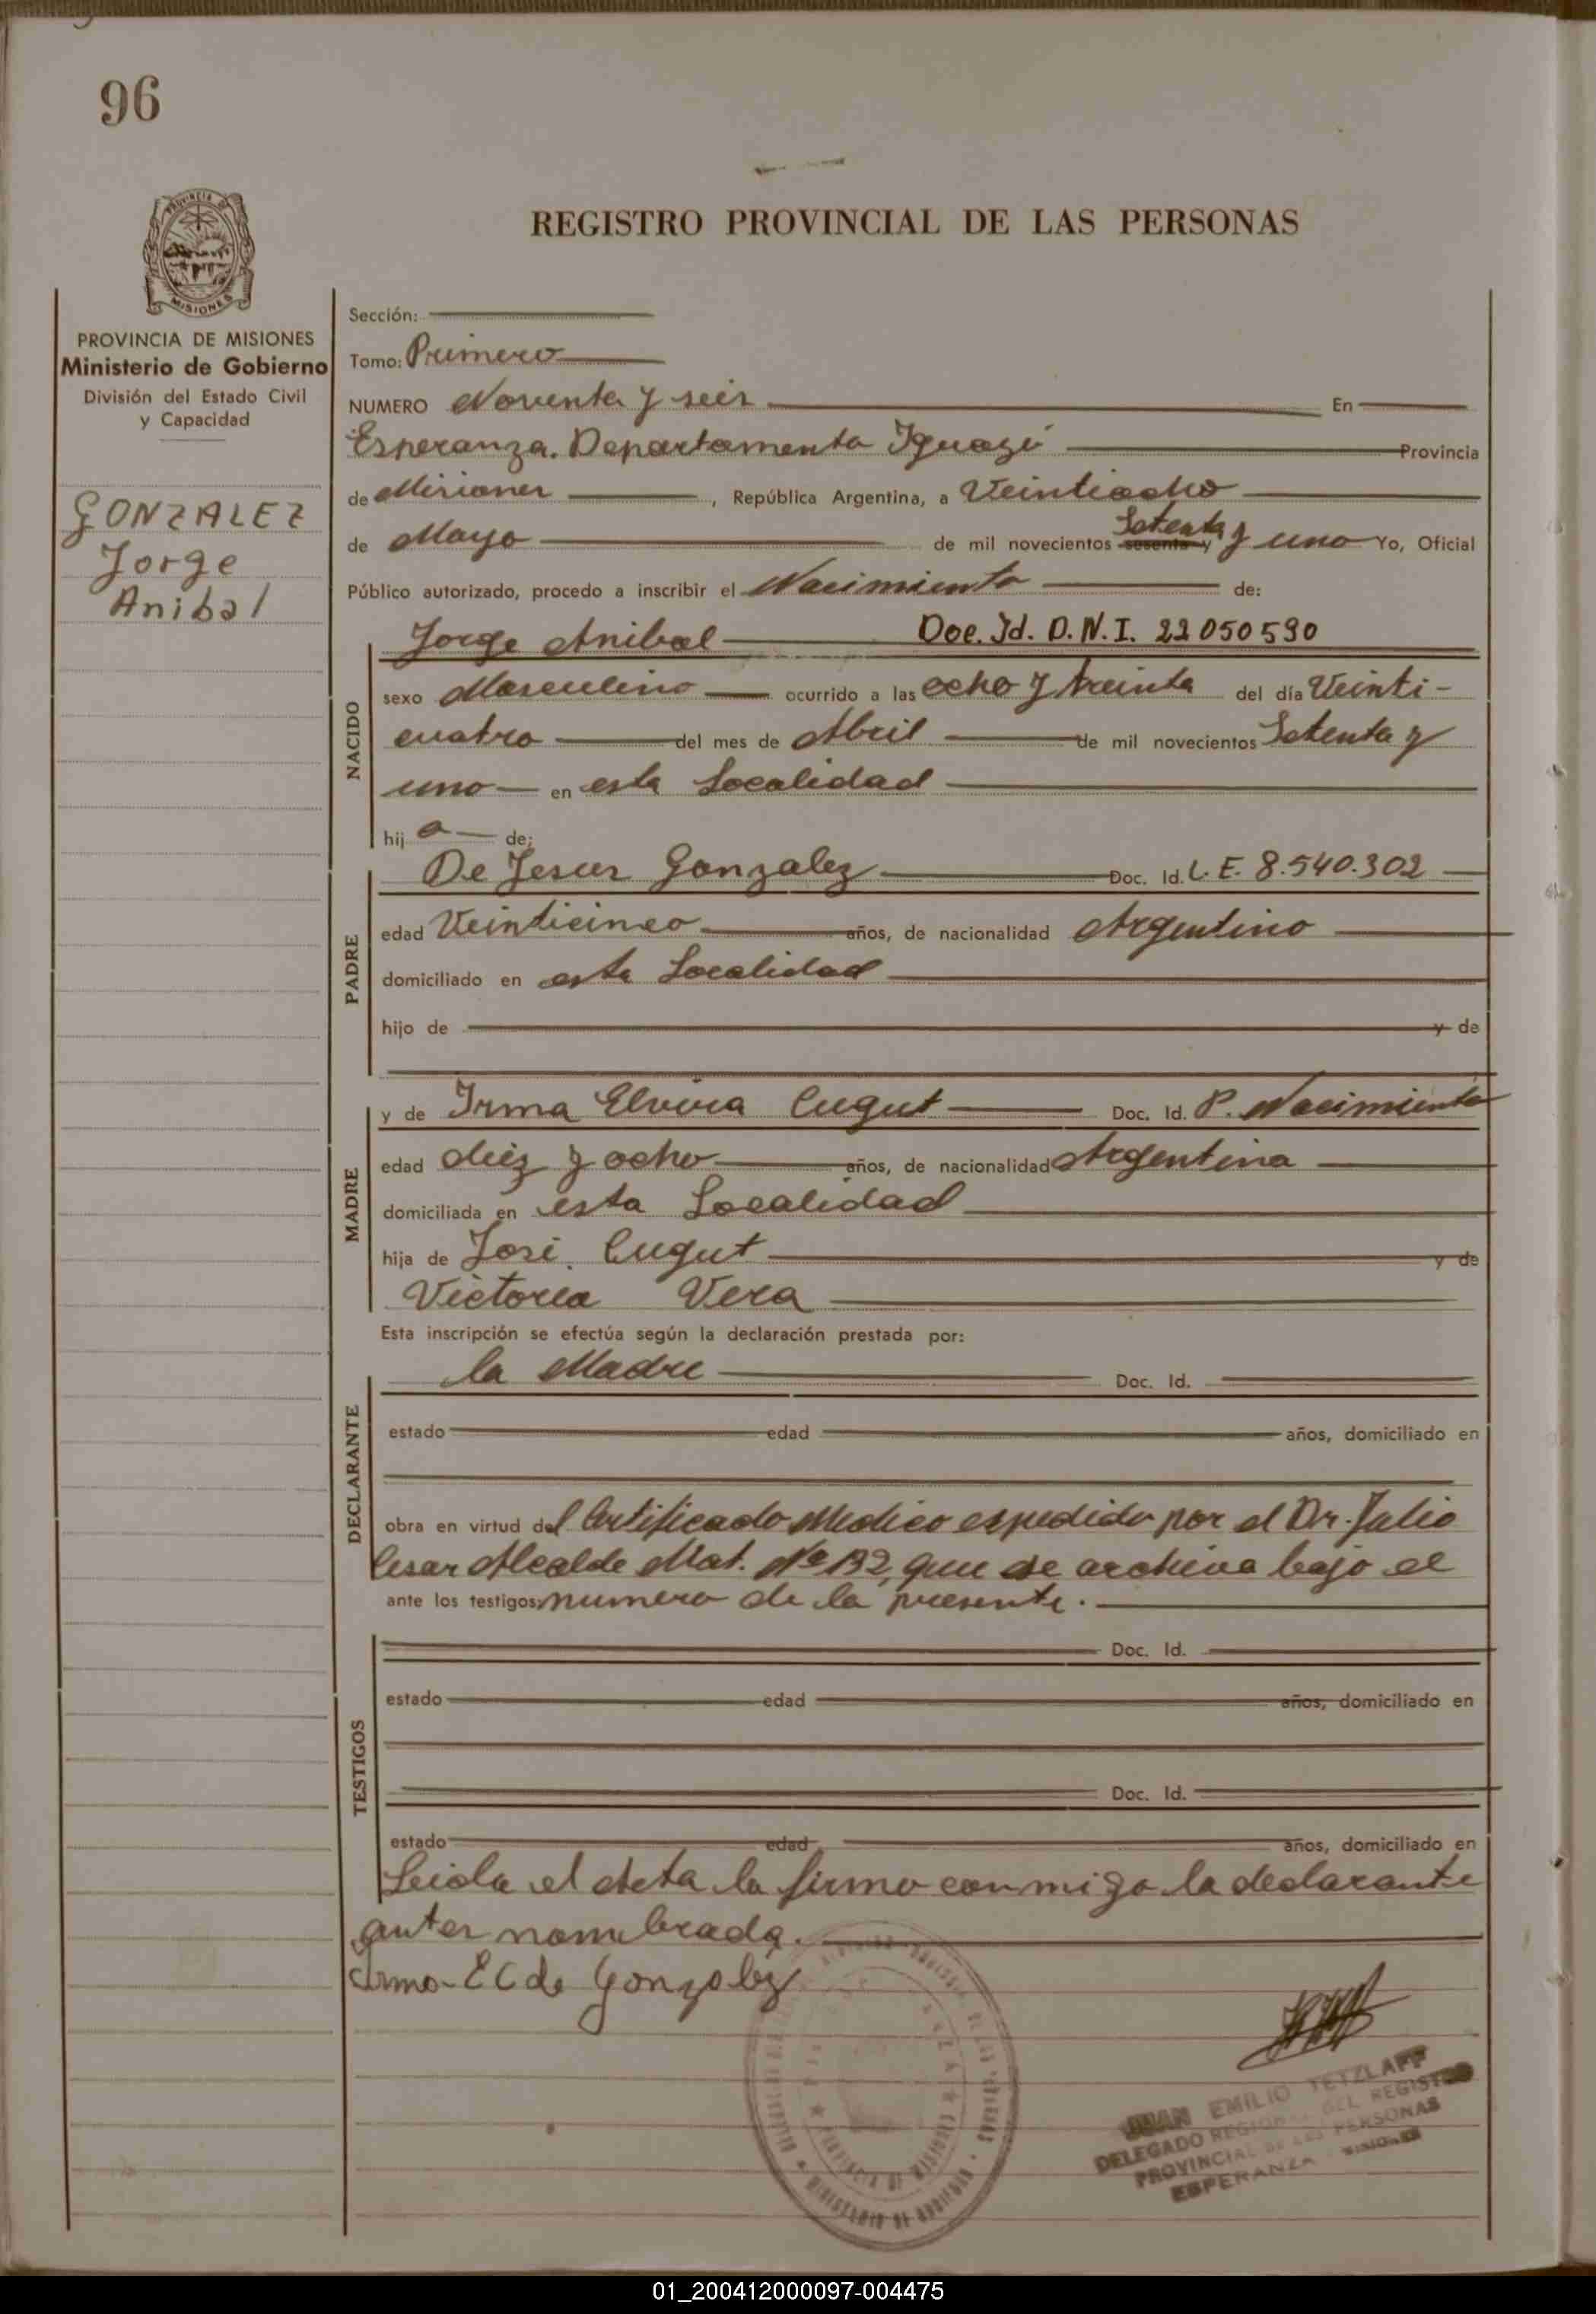 96
PROVINCIA DE
MISIONES
REGISTRO PROVINCIAL DE LAS PERSONAS
PROVINCIA DE MISIONES
Ministerio de Gobierno
División del Estado Civil
y Capacidad
GONZALEZ
Jorge
Anibal
Sección:
Tomo: Primero
NUMERO Noventa y seis En
Esperanza. Departamento Iguazú Provincia
de Misiones, República Argentina, a Veintiocho
de Mayo de mil novecientos sesenta y Setenta y uno Yo, Oficial
Público autorizado, procedo a inscribir el Nacimiento de:
Jorge Anibal Doc. Id. D.N.I. 22 050 590
NACIDO
sexo Masculino ocurrido a las ocho y treinta del día Veinti-
cuatro del mes de Abril de mil novecientos Setenta y
uno en esta Localidad
hij o de;
De Jesus Gonzalez Doc. Id. L.E. 8.540.302
PADRE
edad Veinticinco años, de nacionalidad Argentino
domiciliado en esta Localidad
hijo de y de
y de Irma Elvira Cugut Doc. Id. P. Nacimiento
MADRE
edad diez y ocho años, de nacionalidad Argentina
domiciliada en esta Localidad
hija de José Cugut y de
Victoria Vera
Esta inscripción se efectúa según la declaración prestada por:
la Madre Doc. Id.
DECLARANTE
estado edad años, domiciliado en
obra en virtud del Certificado Medico espedido por el Dr. Julio
Cesar Alcalde Mat. Nº 132, que se archiva bajo el
ante los testigos: numero de la presente.
TESTIGOS
Doc. Id.
estado edad años, domiciliado en
Doc. Id.
estado edad años, domiciliado en
Leida el Acta la firma conmigo la declarante
antes nombrada.
Irma E C de Gonzalez
JUAN EMILIO TETZLAFF
DELEGADO REGIONAL DEL REGISTRO
PROVINCIAL DE LAS PERSONAS
ESPERANZA MISIONES
01_200412000097-004475